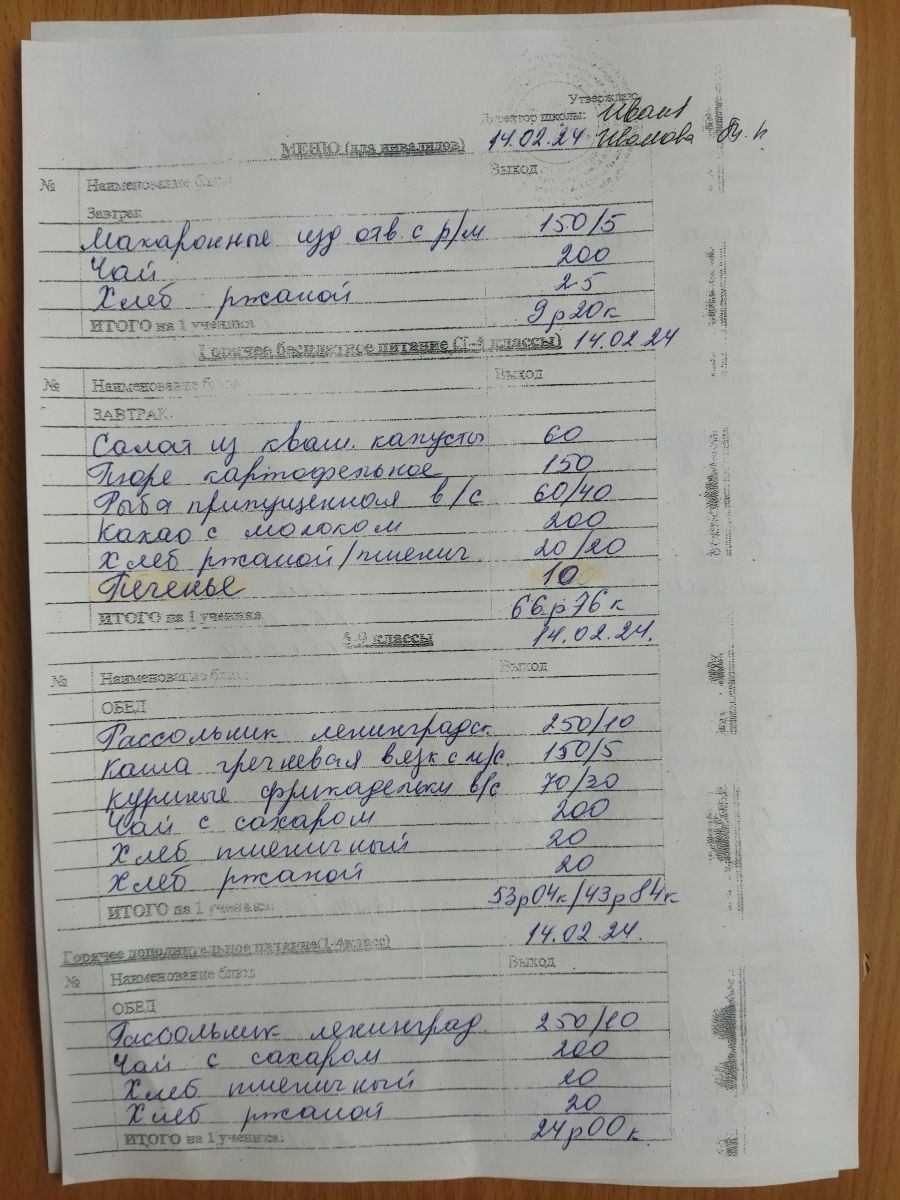 Утверждаю
Директор школы: Иван
МЕНЮ (для инвалидов) 14.02.24 Иванова
№ Наименование блюд Выход
Завтрак
Макаронные изд отв. с р/м 150/5
Чай 200
Хлеб ржаной 25
ИТОГО на 1 ученика 9р20к
Горячее бесплатное питание (1-4 классы) 14.02.24
№ Наименование блюд Выход
ЗАВТРАК
Салат из кваш. капусты 60
Пюре картофельное 150
Рыба припущенная в/с 60/40
Какао с молоком 200
Хлеб ржаной/пшенич. 20/20
Печенье 10
ИТОГО на 1 ученика 66р76к
5-9 классы 14.02.24.
№ Наименование блюд Выход
ОБЕД
Рассольник ленинградск 250/10
Каша гречневая вязк с м/с. 150/5
Куриные фрикадельки в/с 70/30
Чай с сахаром 200
Хлеб пшеничный 20
Хлеб ржаной 20
ИТОГО на 1 ученика: 53р04к/43р84к
14.02.24.
Горячее дополнительное питание(1-4класс)
№ Наименование блюд Выход
ОБЕД
Рассольник ленинград. 250/10
Чай с сахаром 200
Хлеб пшеничный 20
Хлеб ржаной 20
ИТОГО на 1 ученика: 24р00к